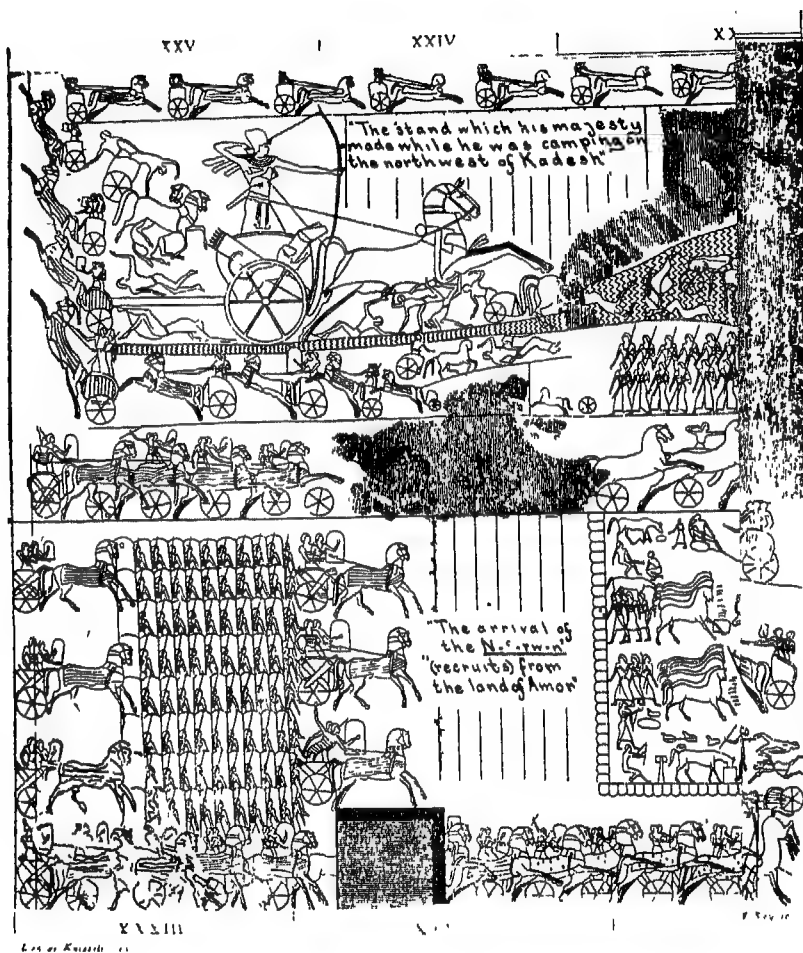 XXV
XXIV
XX
"The stand which his majesty
made while he was camping on
the northwest of Kadesh"
"The arrival of
the N-ʿ-rw-n"
"(recruits) from
the land of Amor"
XXXIII